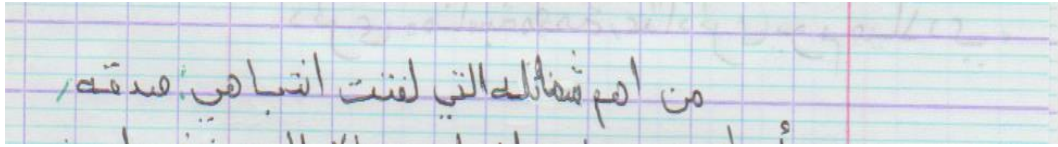 من اهم فضائله التي لفتت انتباهي: صدقه,